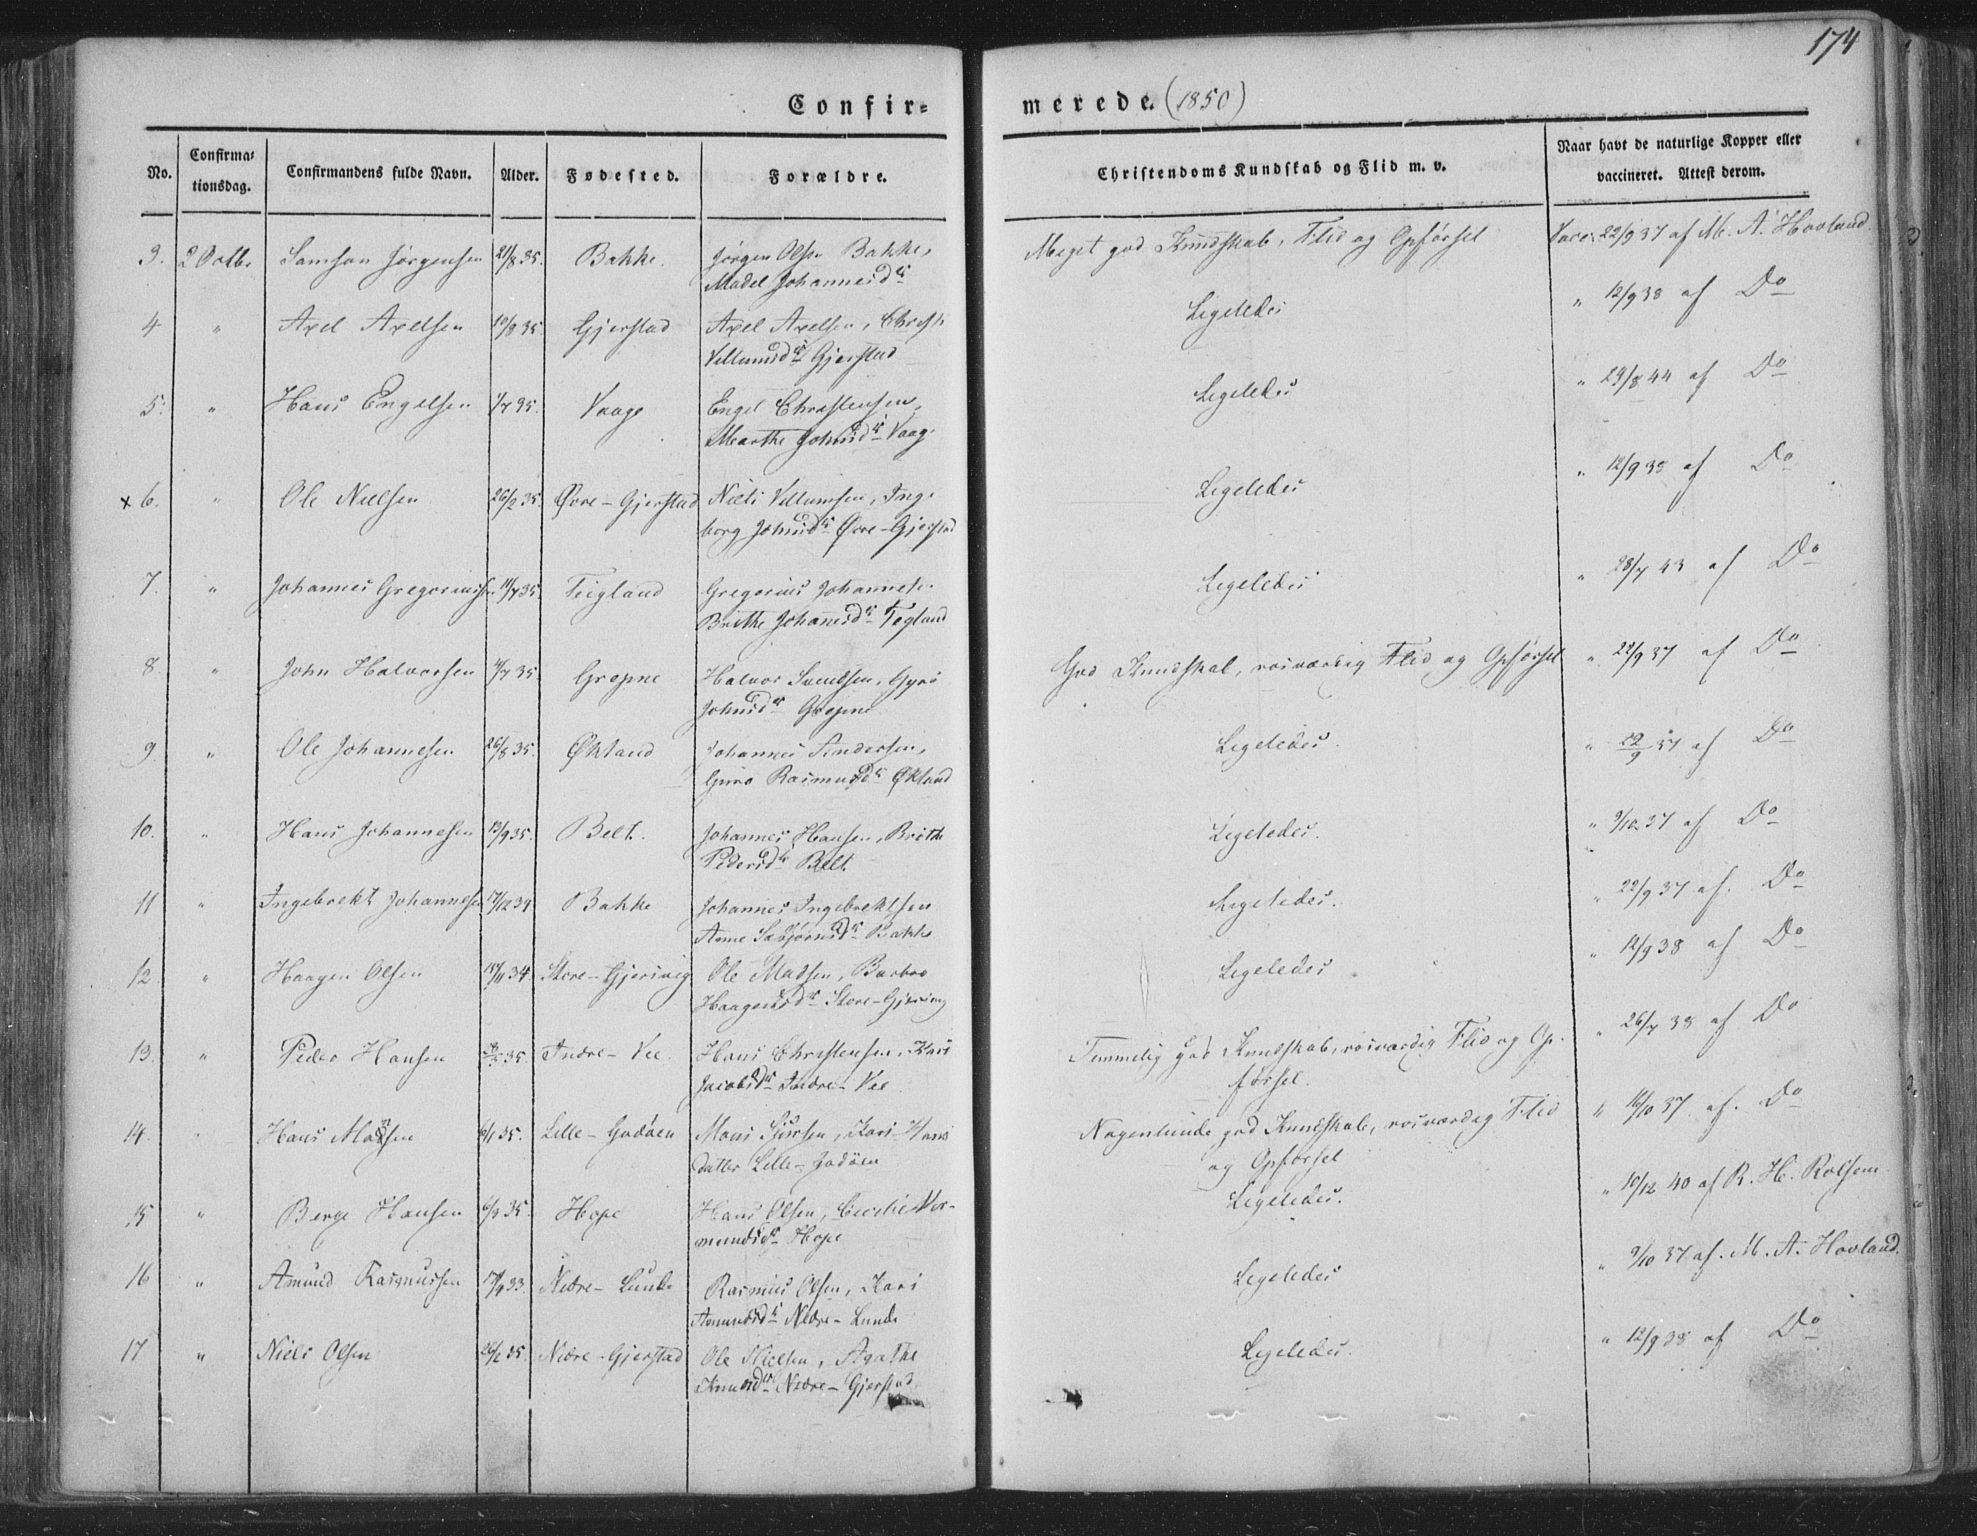 174
Confir= merede. (1850)
No. Confirma= tionsdag. Confirmandens fulde Navn. Alder. Fødested. Forældre. Christendoms Kundskab og Flid m. v. Naar havt de naturlige Kopper eller vaccineret. Attest derom.
3. 2 Octbr Samson Jørgensen 21/8 35. Bakke. Jørgen Olsen Bakke, Meget god Kundskab, Flid og Opførsel Vacc. 22/9 37 af M. A. Hovland
Madel Johannesdr
4 " Axel Axelsen 10/8 35 Gjerstad Axel Axelsen, Christi Ligeledes " 12/9 38 af Do
Villumsdr Gjerstad
5. " Hans Engelsen 1/7 35. Vaage Engel Christensen, Ligeledes " 29/8 44 af Do
Marthe Johnsdr Vaag.
x 6. " Ole Nielsen 26/2 35 Øvre-Gjerstad Niels Villumsen, Inge Ligeledes " 12/9 38 af Do
borg Johnsdr Øvre-Gjerstad
7. " Johannes Gregoriussen 11/7 35. Teigland Gregorius Johannes. Ligeledes " 28/7 43 af Do
Brithe Johannesdr Tegland
8. " John Halvorsen 4/7 35 Gropne Halvor Svendsen, Gyro God Kundskab, rosværdig Flid og Opførsel " 22/9 37 af Do
Johnsdr Gropne
9. " Ole Johannesen 26/8 35. Økland Johannes Andersen, Ligeledes. " 22/9 37 af Do
Guro Rasmusdr Økland
10. " Hans Johannesen 13/9 35. Belt. Johannes Hansen, Brithe Ligeledes. " 9/10 37 af Do
Pedersdr Belt.
11 " Ingebrekt Johannesen 17/12 34 Bakke Johannes Ingebrektsen Ligeledes. " 22/9 37 af. Do
Anne Sæbjørnsdr Bakke
12 " Haagen Olsen 18/11 34. Store-Gjerivig Ole Madsen, Barbro Ligeledes " 12/9 38 af Do
Haagensdr Store-Gjerivig
13. " Peder Hansen 35. Indre-Vee. Hans Christensen, Kari Temmelig god Kundskab, rosværdig Flid og Op- " 26/7 38 af Do
Jacobsdr Indre-Vee. førsel.
14. " Hans Monsen 6/1 35. Lille-Godøen Mons Sjursen, Kari Hans Nogenlunde god Kundskab, rosværdig Flid " 10/10 37. af. Do
datter Lille-Godøen og Opførsel
15 " Berge Hansen 6/3 35. Hope Hans Olsen, Cecilie Ver- Ligeledes. " 10/12 40 af R. H. Rolfsen
mundsdr Hope
16 " Amund Rasmussen 17/9 33. Nedre-Lunde Rasmus Olsen, Kari Ligeledes " 9/10 37 af. M. A. Hovland.
Amundsdr Nedre-Lunde
17 " Niels Olsen 26/2 35. Nedre-Gjerstad Ole Nielsen, Agathe Ligeledes. " 12/9 38 af Do
Knudsdr Nedre-Gjerstad.